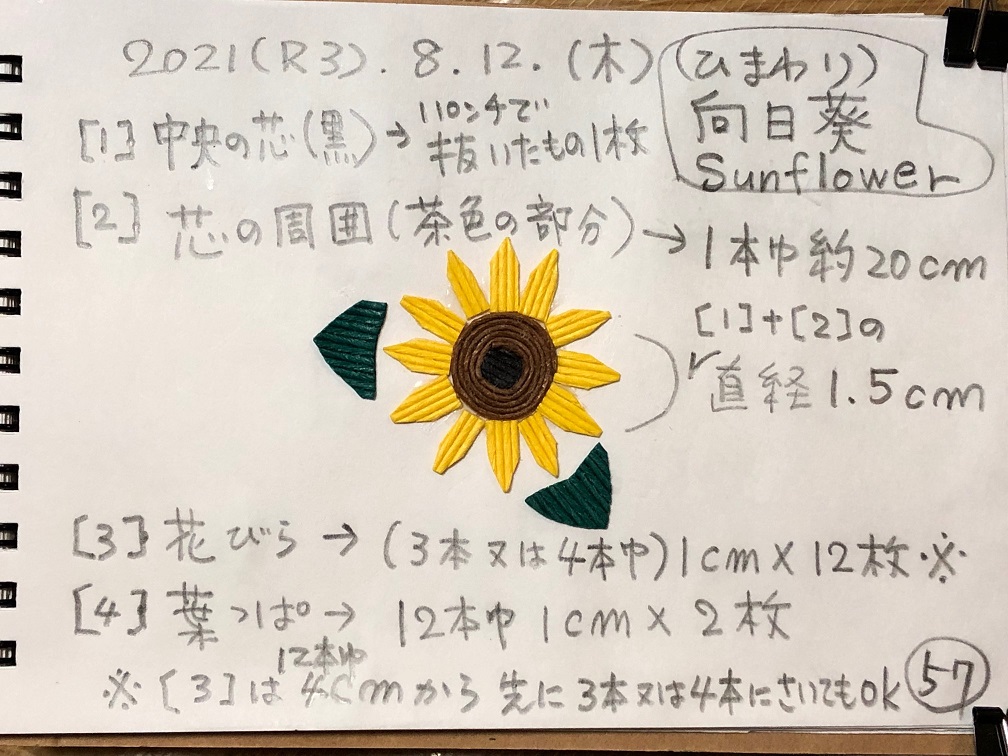 2021(R3). 8. 12. (木)
(ひまわり)
向日葵
Sunflower
[1] 中央の芯(黒) → パンチで
抜いたもの1枚
[2] 芯の周囲(茶色の部分) → 1本巾約20cm
[1]+[2]の
直経1.5cm
[3] 花びら → (3本又は4本巾)1cm×12枚※
[4] 葉っぱ → 12本巾 1cm×2枚
12本巾
※ [3]は4cmから 先に3本又は4本にさいてもOK
57